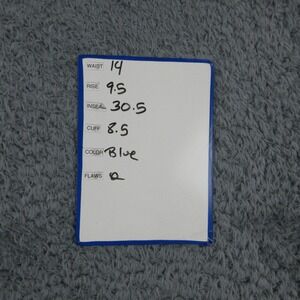 WAIST 14
RISE 9.5
INSEAL 30.5
CUFF 8.5
COLOR Blue
FLAWS